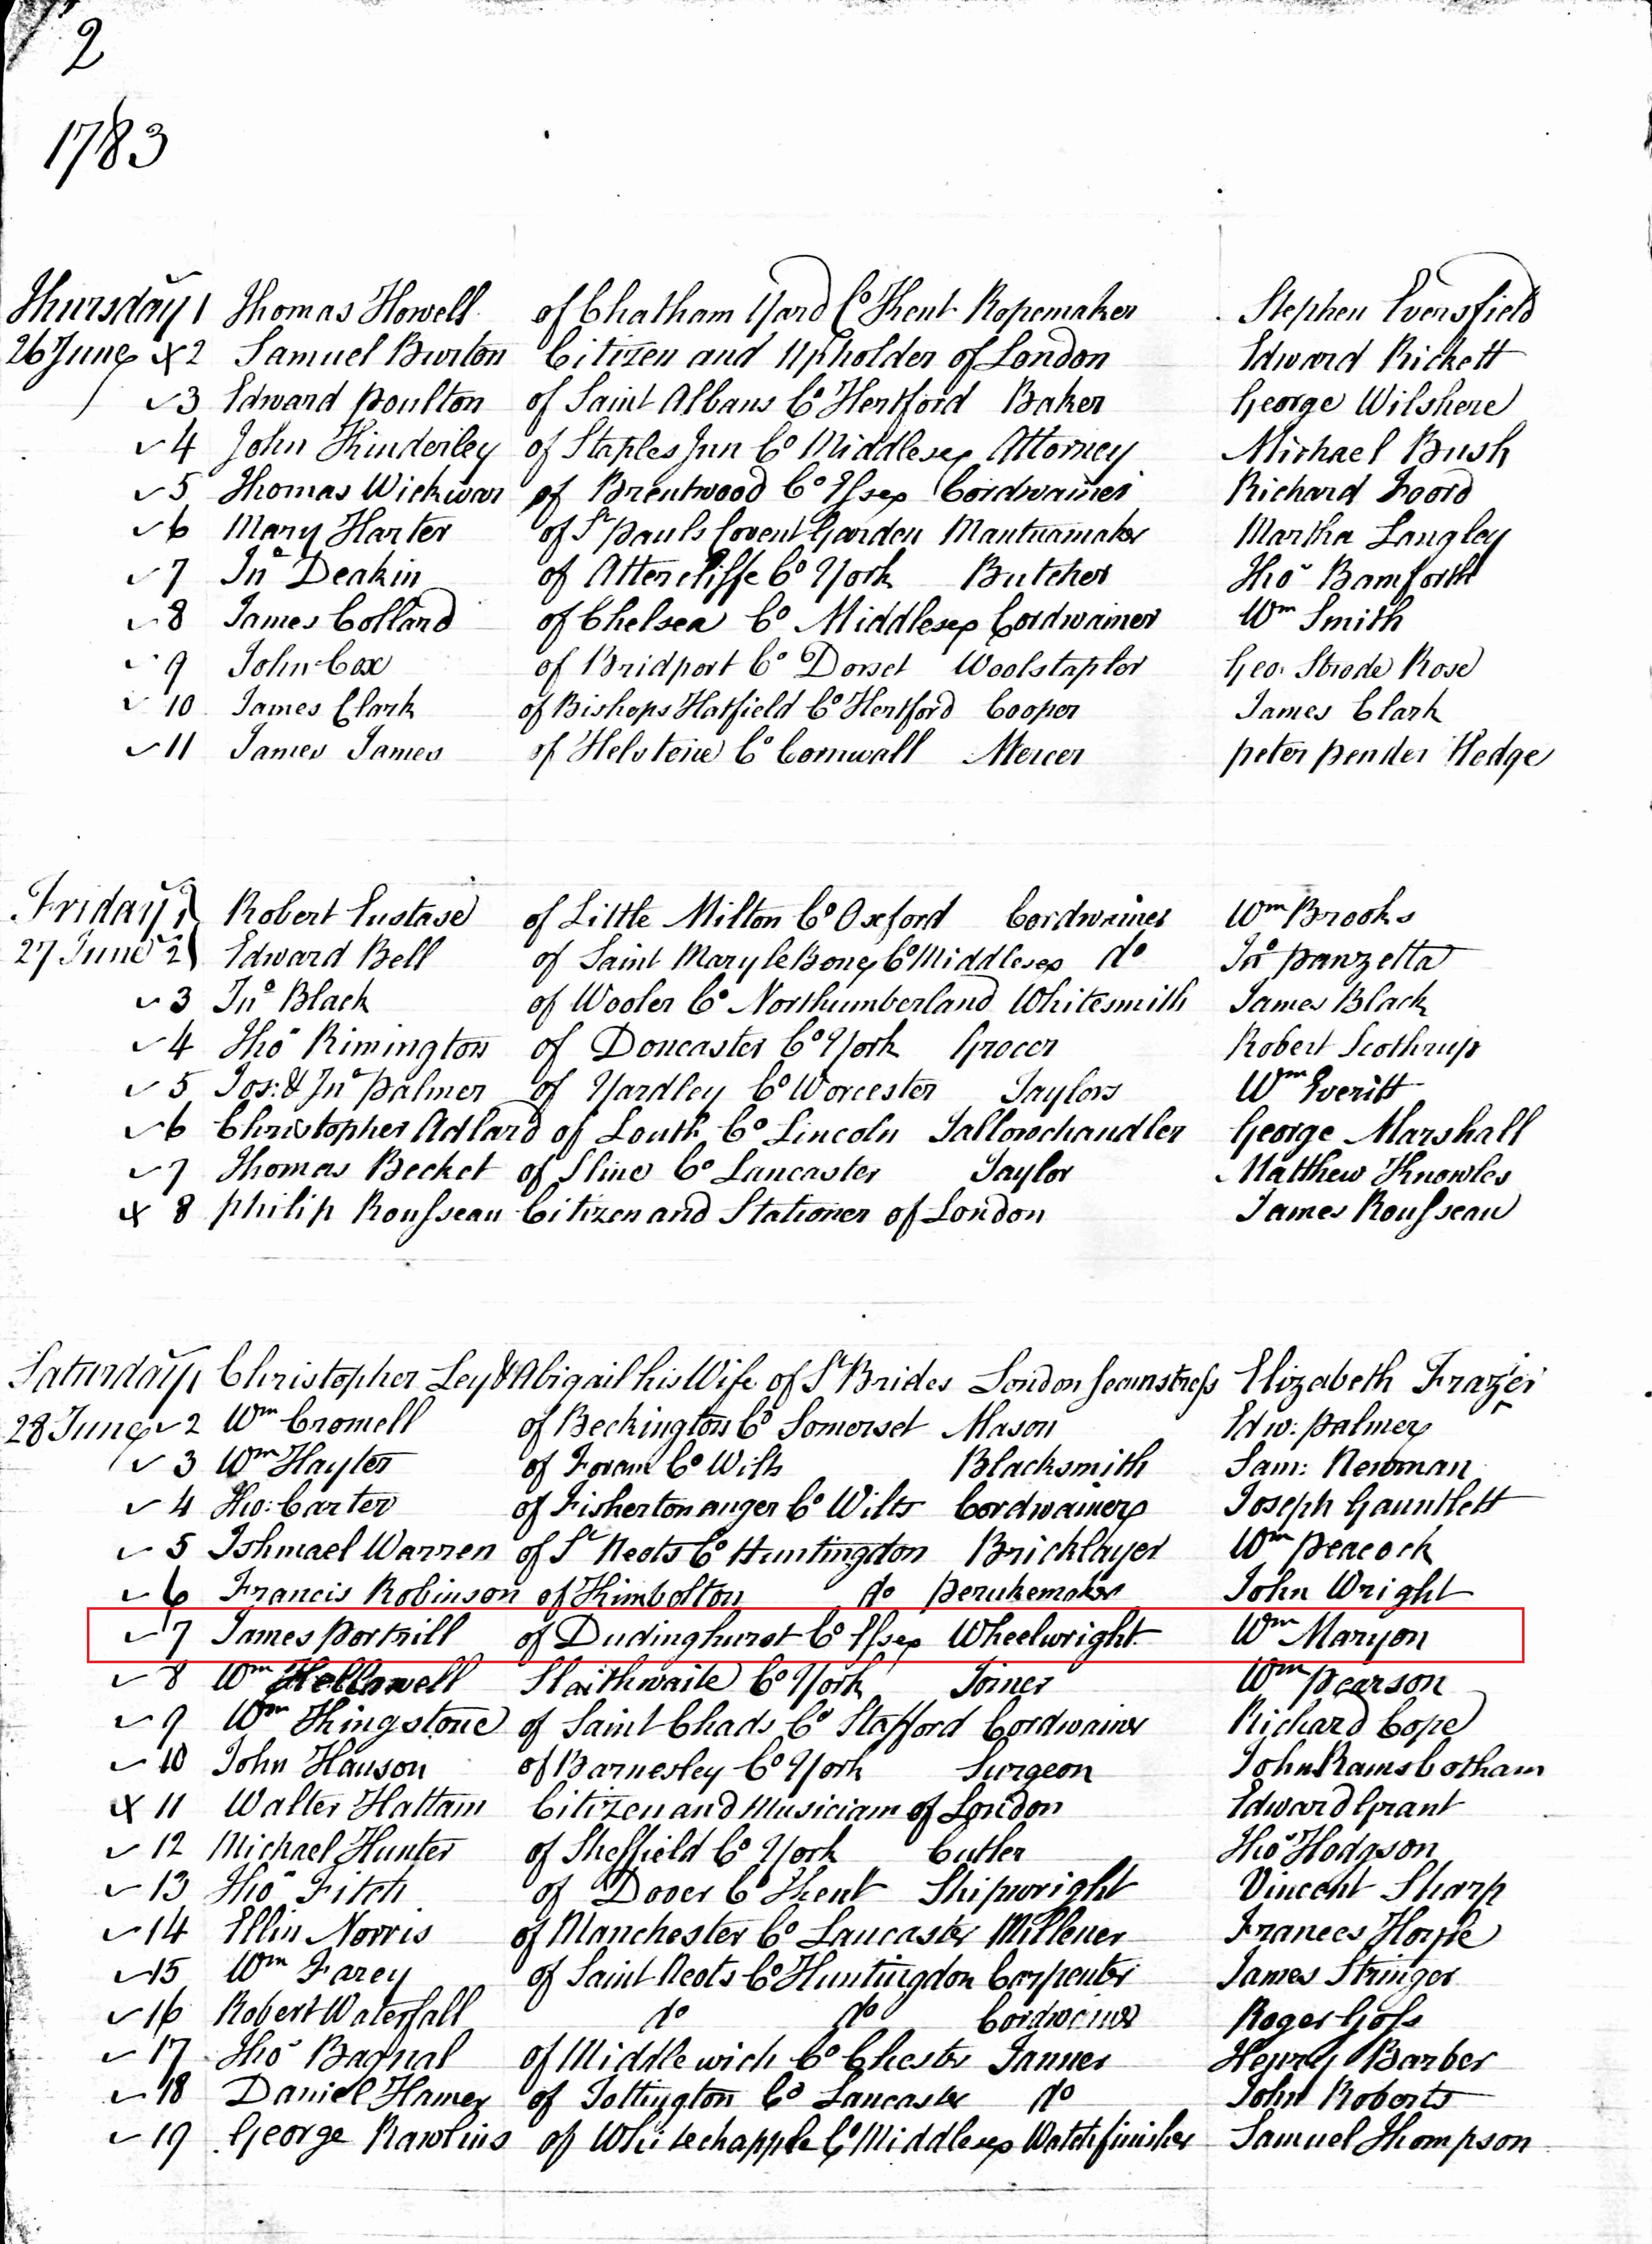 2
1783
Thursday 1 Thomas Howell of Chatham Yard Co Kent Ropemaker Stephen Eversfield
26 June x 2 Samuel Burton Citizen and Upholder of London Edward Rickett
3 Edward Poulton of Saint Albans Co Hertford Baker George Wilshere
4 John Kinderley of Staples Inn Co Middlesex Attorney Michael Bush
5 Thomas Wickwar of Brentwood Co Essex Cordwainer Richard Foord
6 Mary Harter of St Pauls Covent Garden Mantuamaker Martha Langley
7 Jno Deakin of Attercliffe Co York Butcher Thos Bamforth
8 James Collard of Chelsea Co Middlesex Cordwainer Wm Smith
9 John Cox of Bridport Co Dorset Woolstapler Geo: Strode Rose
10 James Clark of Bishops Hatfield Co Hertford Cooper James Clark
11 James James of Helstone Co Cornwall Mercer Peter Pender Hedge
Friday 1 Robert Eustase of Little Milton Co Oxford Cordwainer Wm Brooks
27 June 2 Edward Bell of Saint Mary le Bone Co Middlesex do Jno Panzetta
3 Jno Black of Wooler Co Northumberland Whitesmith James Black
4 Tho Rimington of Doncaster Co York Grocer Robert Scothrup
5 Jos: & Jno Palmer of Yardley Co Worcester Taylors Wm Everitt
6 Christopher Adlard of Louth Co Lincoln Tallowchandler George Marshall
7 Thomas Becket of Sline Co Lancaster Taylor Matthew Knowles
x 8 Philip Rousseau Citizen and Stationer of London James Rousseau
Saturday 1 Christopher Ley & Abigail his Wife of St Brides London Seamstress Elizabeth Frazer
28 June 2 Wm Cromell of Beckington Co Somerset Mason Edw: Palmer
3 Wm Hayter of Foram Co Wilts Blacksmith Sam: Newman
4 Tho: Carter of Fisherton anger Co Wilts Cordwainer Joseph Gauntlett
5 Ishmael Warren of St Neots Co Huntingdon Bricklayer Wm Peacock
6 Francis Robinson of Kimbolton do Perukemaker John Wright
7 James Portsill of Dudinghurst Co Essex Wheelwright Wm Maryon
8 Wm Hellawell Slaithwaite Co York Joiner Wm Pearson
9 Wm Kingstone of Saint Chads Co Stafford Cordwainer Richard Cope
10 John Hauson of Barnesley Co York Surgeon John Ramsbotham
x 11 Walter Hattam Citizen and Musician of London Edward Grant
12 Michael Hunter of Sheffield Co York Cutler Tho Hodgson
13 Tho Fitch of Dover Co Kent Shipwright Vincent Sharp
14 Ellin Norris of Manchester Co Lancaster Millener Frances Hoyle
15 Wm Farey of Saint Neots Co Huntingdon Carpenter James Stringer
16 Robert Waterfall do do Cordwainer Roger Goss
17 Tho Bagnal of Middlewich Co Chester Tanner Henry Barber
18 Daniel Hamer of Tottington Co Lancaster do John Roberts
19 George Rawlins of Whitechapple Co Middlesex Watchfinisher Samuel Thompson